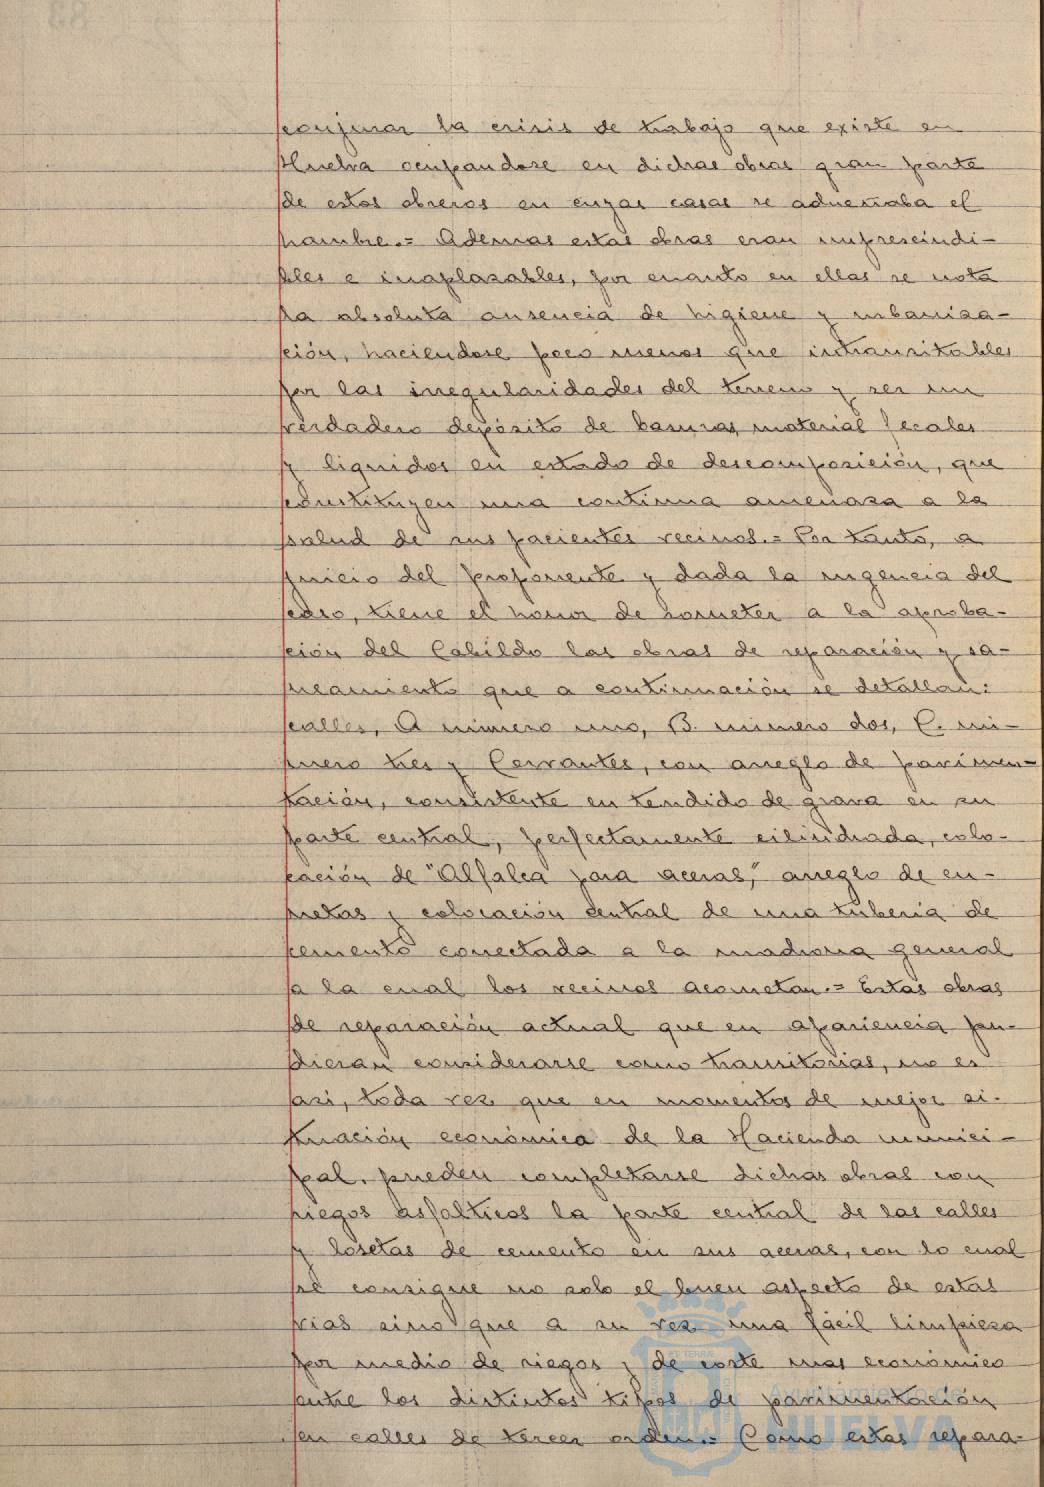 conjurar la crisis de trabajo que existe en
Huelva ocupandose en dichas obras gran parte
de estos obreros en cuyas casas se adueñaba el
hambre.= Ademas estas obras eran imprescindi-
bles e inaplazables, por cuanto en ellas se nota
la absoluta ausencia de higiene y urbaniza-
ción, haciendose poco menos que intransitables
por las irregularidades del terreno y ser un
verdadero depósito de basuras, material fecales
y liquidos en estado de descomposición, que
constituyen una continua amenaza a la
salud de sus pacientes vecinos.= Por tanto, a
juicio del proponente y dada la urgencia del
caso, tiene el honor de someter a la aproba-
ción del Cabildo las obras de reparación y sa-
neamiento que a continuación se detallan:
calles, A número uno, B. número dos, C. nú-
mero tres y Cervantes, con arreglo de pavimen-
tación, consistente en tendido de grava en su
parte central, perfectamente cilindrada, colo-
cación de "Alfalca para aceras," arreglo de cu-
netas y colocación central de una tubería de
cemento conectada a la madrona general
a la cual los vecinos acometan.= Estas obras
de reparación actual que en apariencia pu-
dieran considerarse como transitorias, no es
asi, toda vez que en momentos de mejor si-
tuación económica de la Hacienda munici-
pal, pueden completarse dichas obras con
riegos asfalticos la parte central de las calles
y losetas de cemento en sus aceras, con lo cual
se consigue no solo el buen aspecto de estas
vias sino que a su vez una fácil limpieza
por medio de riegos y de coste mas económico
entre los distintos tipos de pavimentación
en calles de tercer orden.= Como estas repara-
Ayuntamiento de
HUELVA